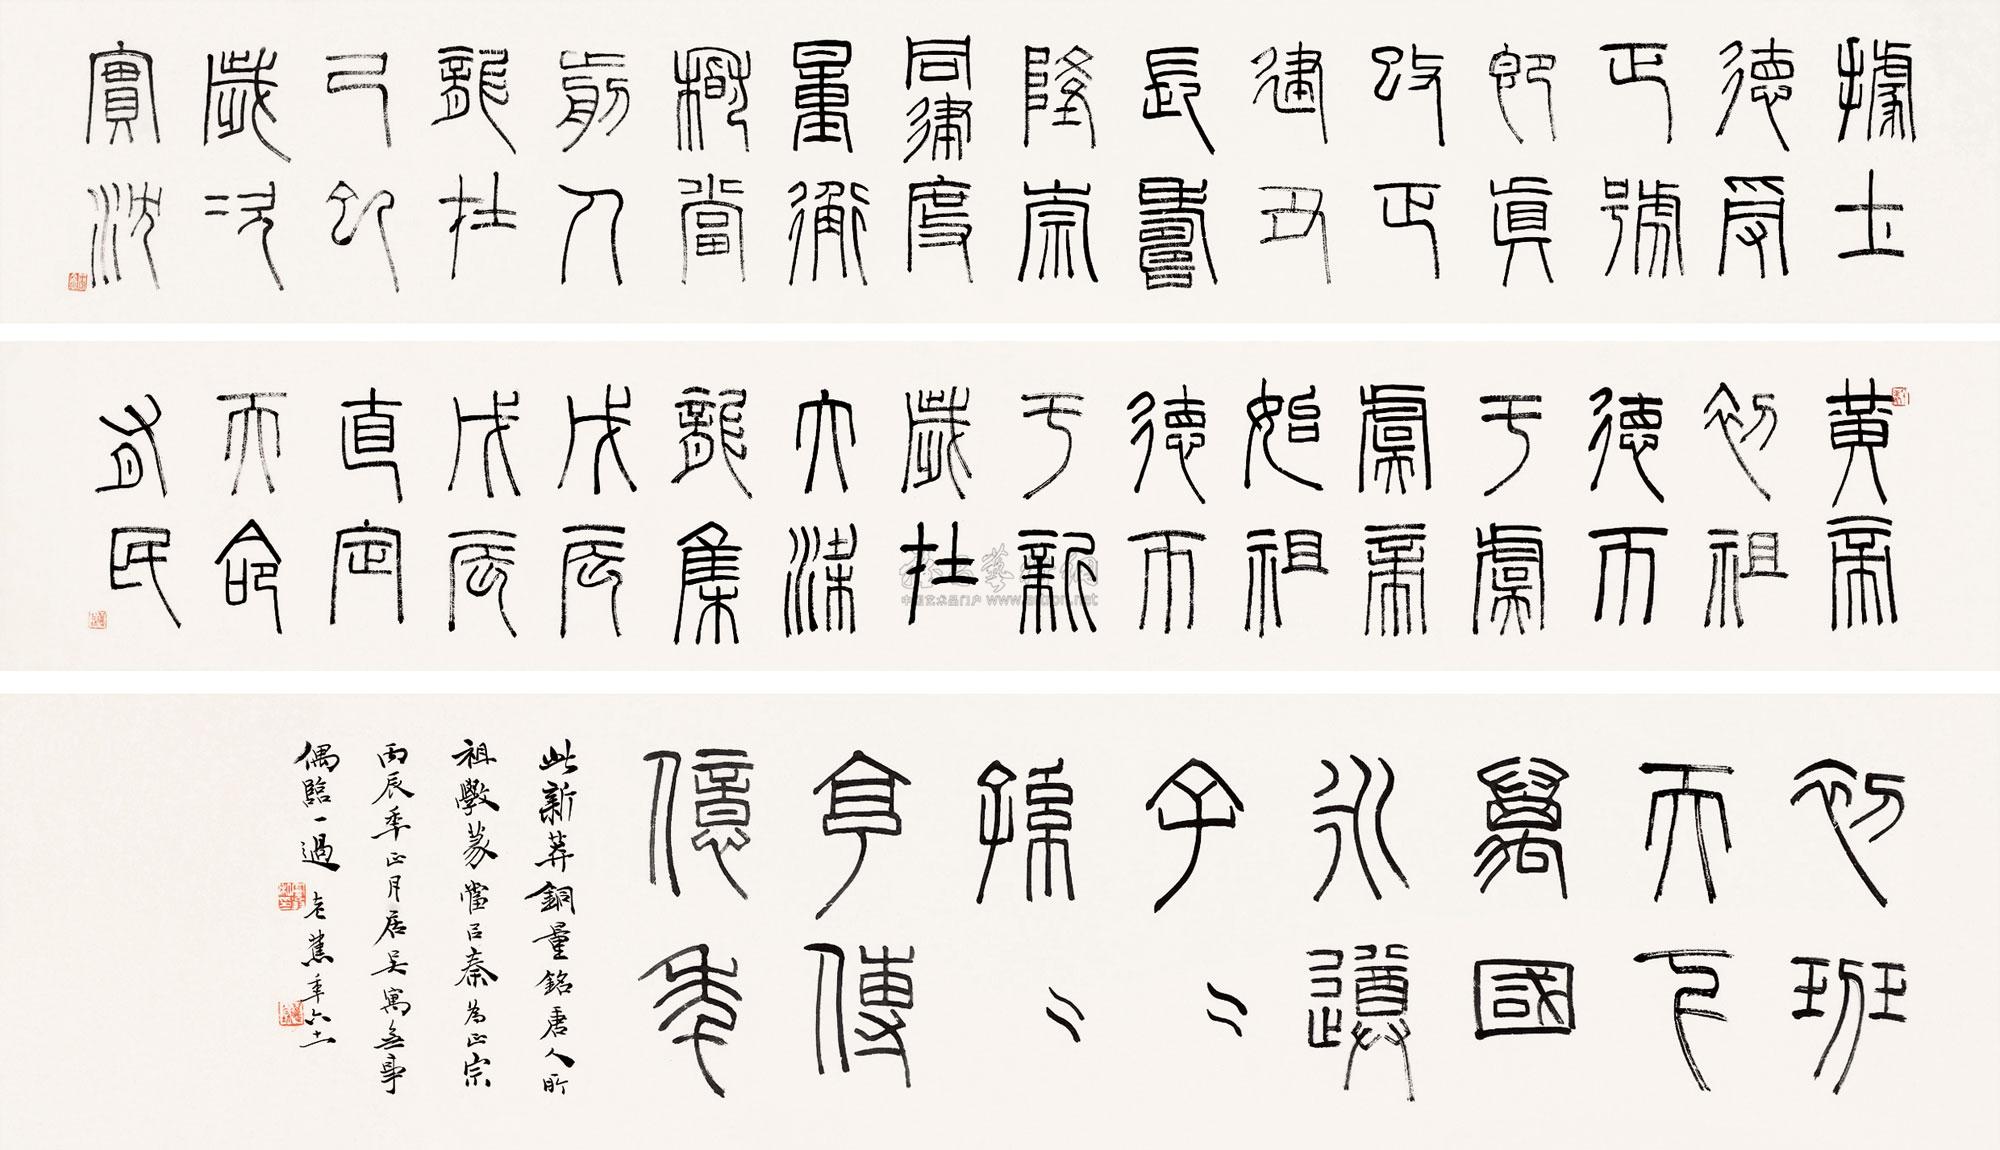 據土
德受
正號
即真
改正
建丑
長壽
隆崇
同律度
量衡
稽當
前人
龍在
己巳
歲次
實沈
黃帝
初祖
德帀
于虞
虞帝
始祖
德帀
于新
歲在
大梁
龍集
戊辰
戊辰
直定
天命
有民
初班
天下
萬國
永遵
子〻
孫〻
享傳
億年
此新莽銅量銘唐人所
祖斅篆當㠯秦為正宗
丙辰年正月居吳寓無事
偶臨一過 老蕉年六十一
中国艺术品门户 www.artron.net